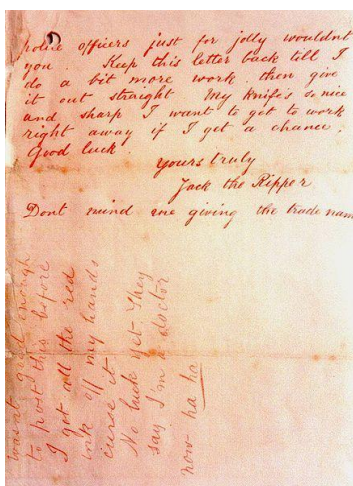 police officers just for jolly wouldnt
you. Keep this letter back till I
do a bit more work. then give
it out straight My knife's so nice
and sharp I want to get to work
right away if I get a chance,
Good luck.
Yours truly
Jack the Ripper
Dont mind me giving the trade name
wasnt good enough
to post this before
I got all the red
ink off my hands
curse it
No luck yet. They
say I'm a doctor
now ha ha